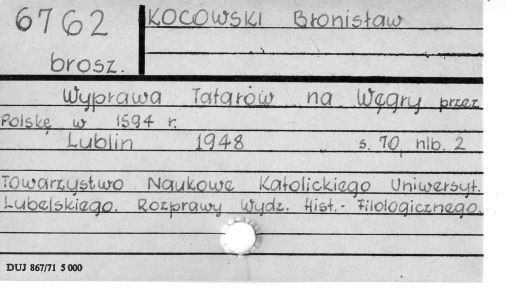 6762
KOCOWSKI Bronisław
brosz.
Wyprawa Tatarów na Węgry przez
Polskę w 1594 r.
Lublin 1948 s. 70, nlb. 2
Towarzystwo Naukowe Katolickiego Uniwersyt.
Lubelskiego. Rozprawy Wydz. Hist.- Filologicznego.
DUJ 867/71 5 000